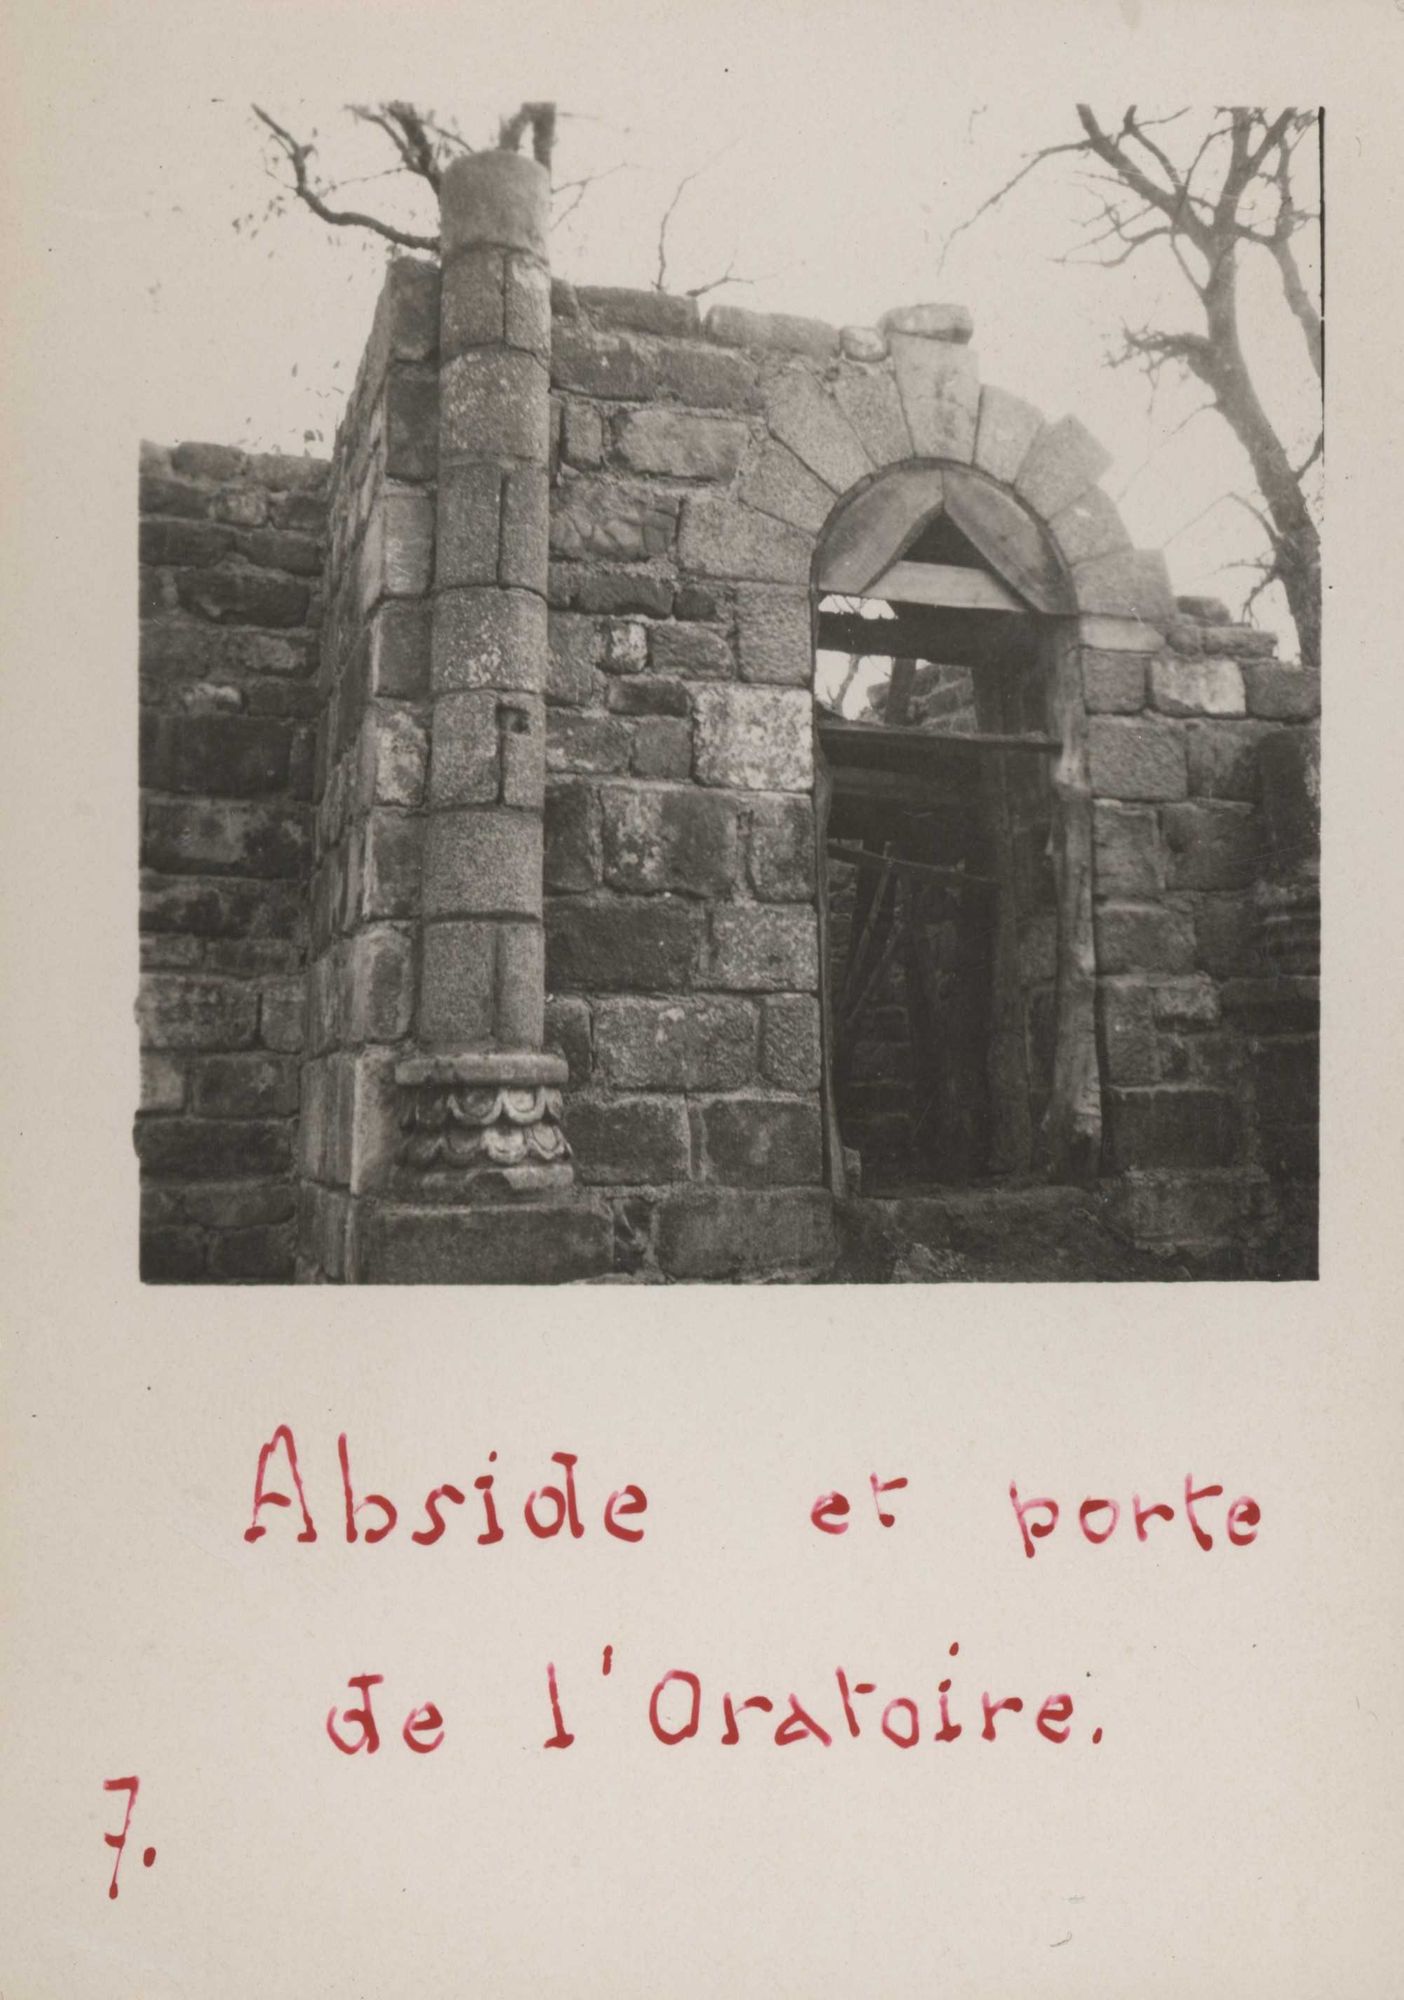 Abside et porte
de l'Oratoire.
7.